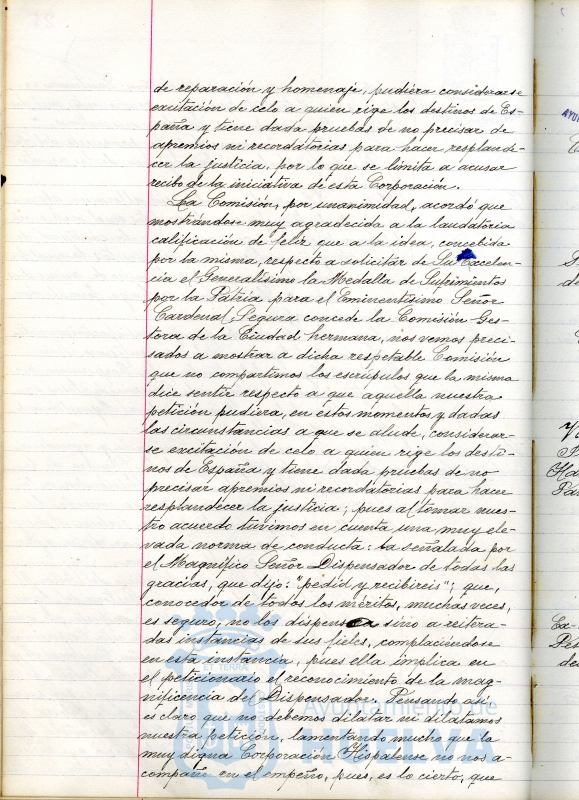 de reparación y homenaje, pudiera considerarse
excitación de celo a quien rige los destinos de Es-
paña y tiene dada pruebas de no precisar de
apremios ni recordatorias para hacer resplande-
cer la justicia, por lo que se limita a acusar
recibo de la iniciativa de esta Corporación.
La Comisión, por unanimidad, acordó que
mostrándose muy agradecida a la laudatoria
calificación de feliz que a la idea, concebida
por la misma, respecto a solicitar de Su Excelen-
cia el Generalísimo la Medalla de Sufrimientos
por la Patria para el Eminentísimo Señor
Cardenal Segura concede la Comisión Ges-
tora de la Ciudad hermana, nos vemos preci-
sados a mostrar a dicha respetable Comisión
que no compartimos los escrúpulos que la misma
dice sentir respecto a que aquella nuestra
petición pudiera, en estos momentos y dadas
las circunstancias a que se alude, considerar-
se excitación de celo a quien rige los desti-
nos de España y tiene dada pruebas de no
precisar apremios ni recordatorias para hacer
resplandecer la justicia; pues al tomar nues-
tro acuerdo tuvimos en cuenta una muy ele-
vada norma de conducta: la señalada por
el Magnífico Señor Dispensador de todas las
gracias, que dijo: "pedid y recibireis"; que,
conocedor de todos los méritos, muchas veces,
es seguro, no los dispensa sino a reitera-
das instancias de sus fieles, complaciéndose
en esta instancia, pues ella implica en
el peticionario el reconocimiento de la mag-
nificencia del Dispensador. Pensando así
es claro que no debemos dilatar ni dilatamos
nuestra petición, lamentando mucho que la
muy digna Corporación Hispalense no nos a-
compañe en el empeño, pues, es lo cierto, que
EL TERRA
Ayuntamiento de
HUELVA
AYU
de
Ha
Pa
Ex-
Pes
de